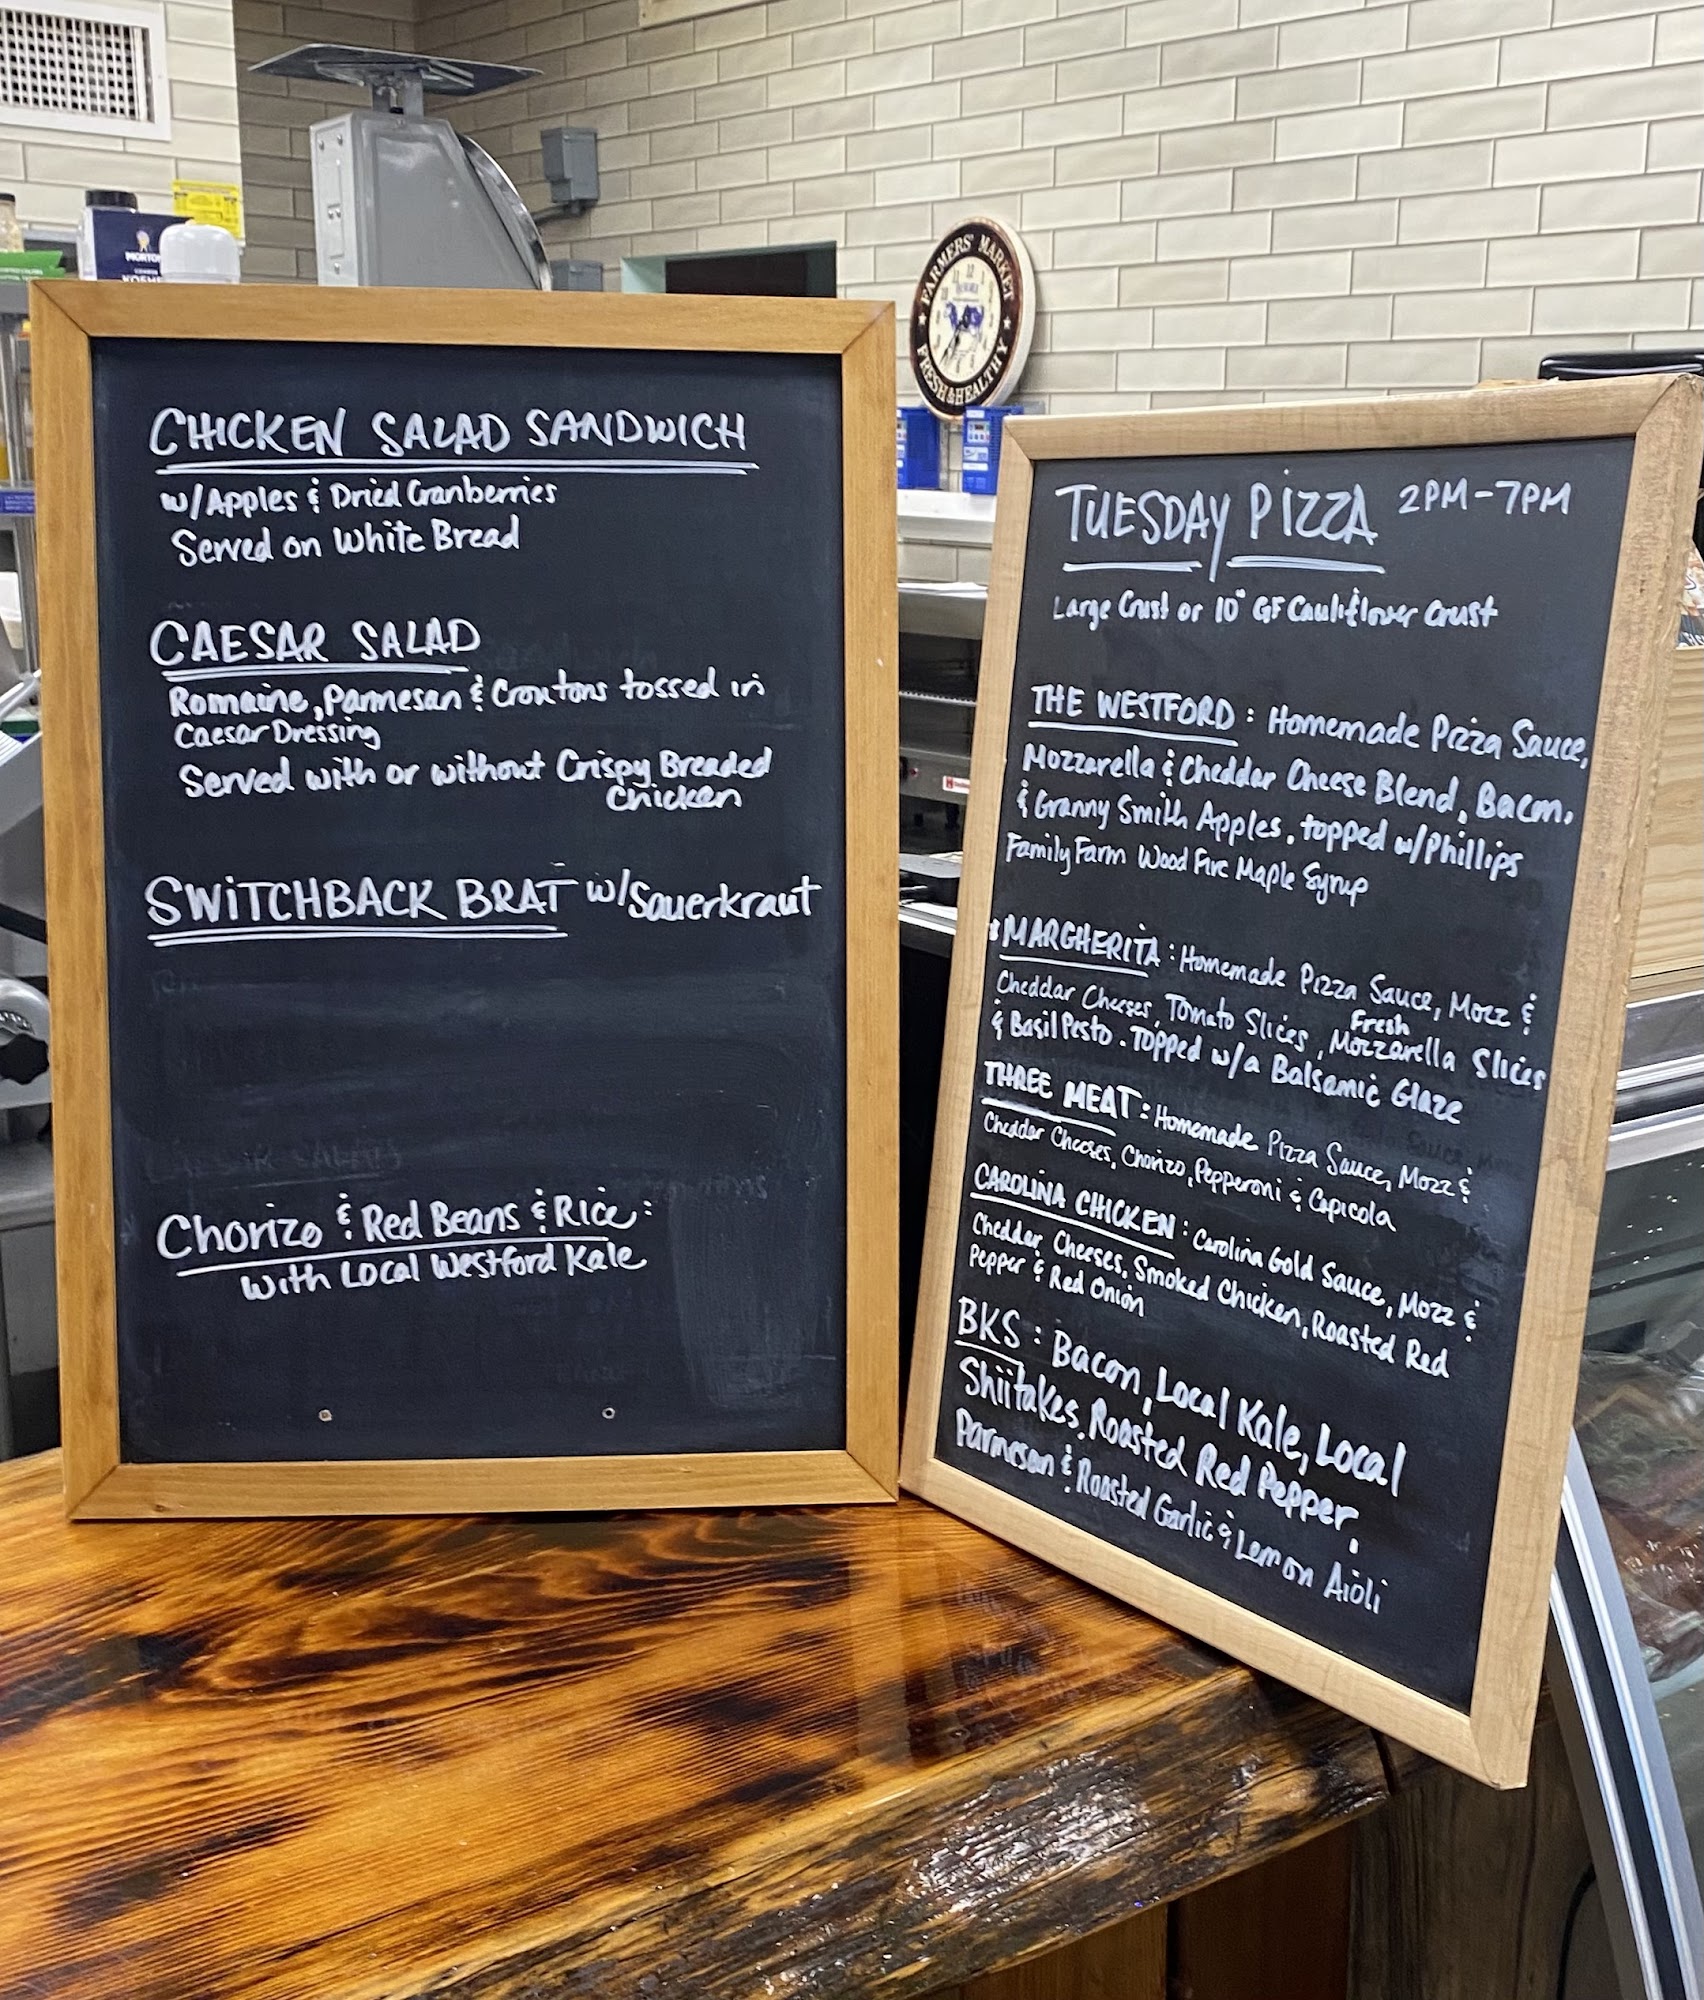 MORTON
KOSHER
FARMERS' MARKET
FRESH & HEALTHY
CHICKEN SALAD SANDWICH
w/Apples & Dried Cranberries
Served on White Bread
CAESAR SALAD
Romaine, Parmesan & Croutons tossed in
Caesar Dressing
Served with or without Crispy Breaded
Chicken
SWITCHBACK BRAT w/Sauerkraut
Chorizo & Red Beans & Rice:
with Local Westford Kale
TUESDAY PIZZA 2PM-7PM
Large Crust or 10" GF Cauliflower Crust
THE WESTFORD: Homemade Pizza Sauce,
Mozzarella & Cheddar Cheese Blend, Bacon,
& Granny Smith Apples. topped w/Phillips
Family Farm Wood Fire Maple Syrup
MARGHERITA: Homemade Pizza Sauce, Mozz &
Cheddar Cheeses, Tomato Slices, Fresh Mozzarella Slices
& Basil Pesto. Topped w/a Balsamic Glaze
THREE MEAT: Homemade Pizza Sauce, Mozz &
Cheddar Cheeses, Chorizo, Pepperoni & Capicola
CAROLINA CHICKEN: Carolina Gold Sauce, Mozz &
Cheddar Cheeses, Smoked Chicken, Roasted Red
Pepper & Red Onion
BKS: Bacon, Local Kale, Local
Shiitakes, Roasted Red Pepper,
Parmesan & Roasted Garlic & Lemon Aioli